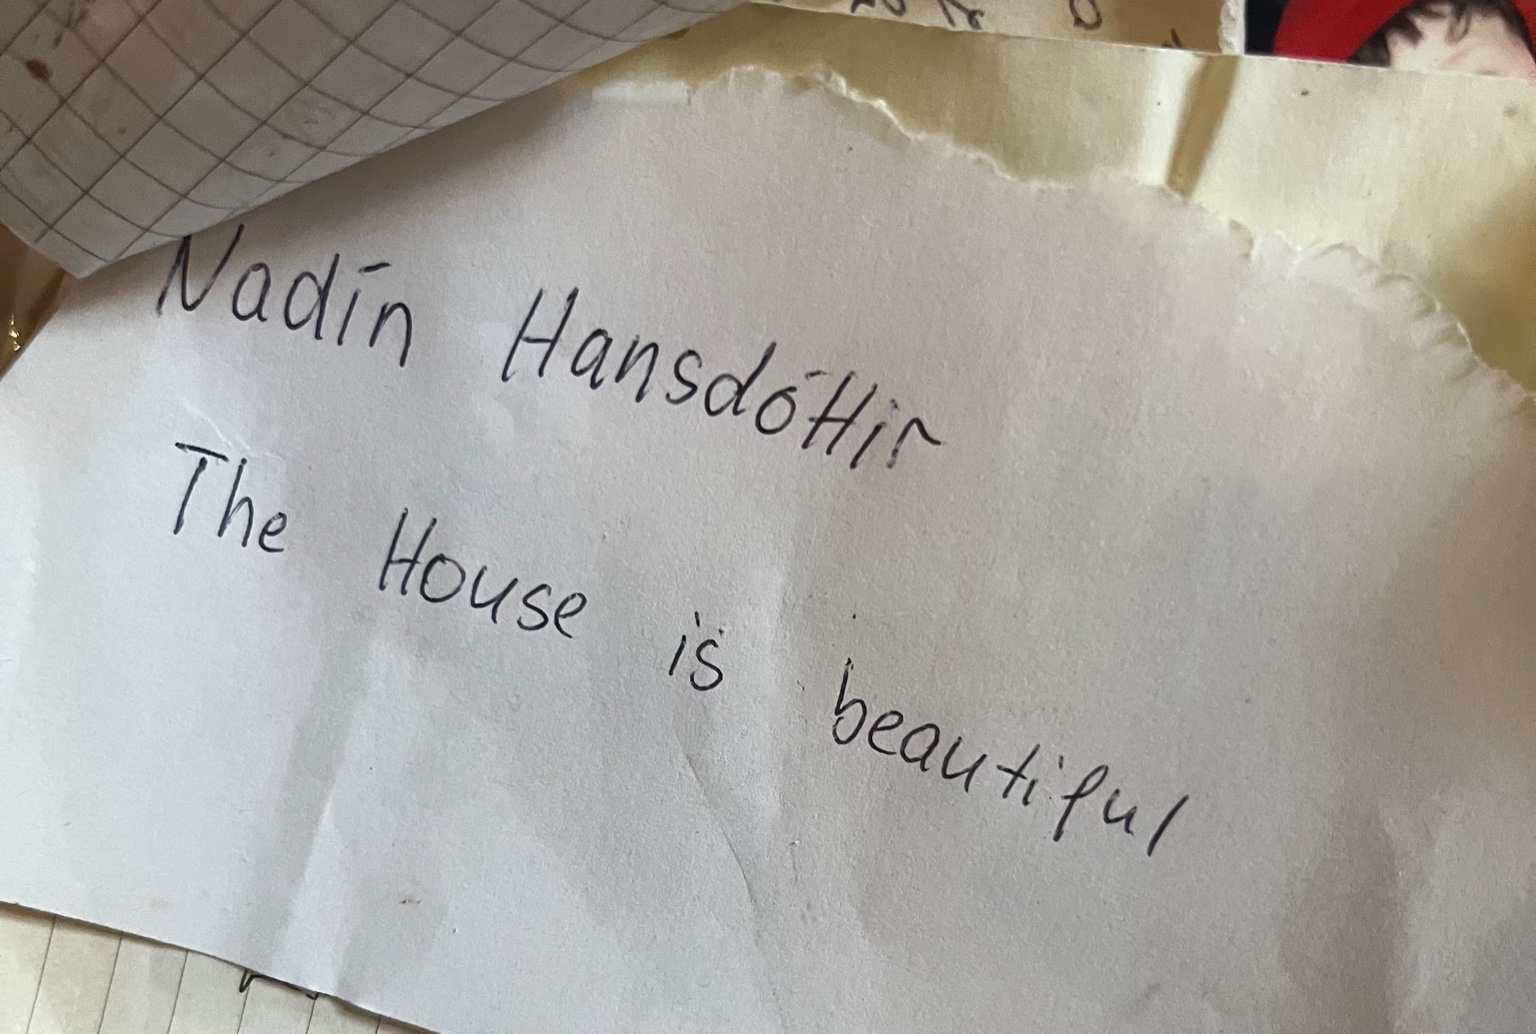 Nadín Hansdóttir
The House is beautiful